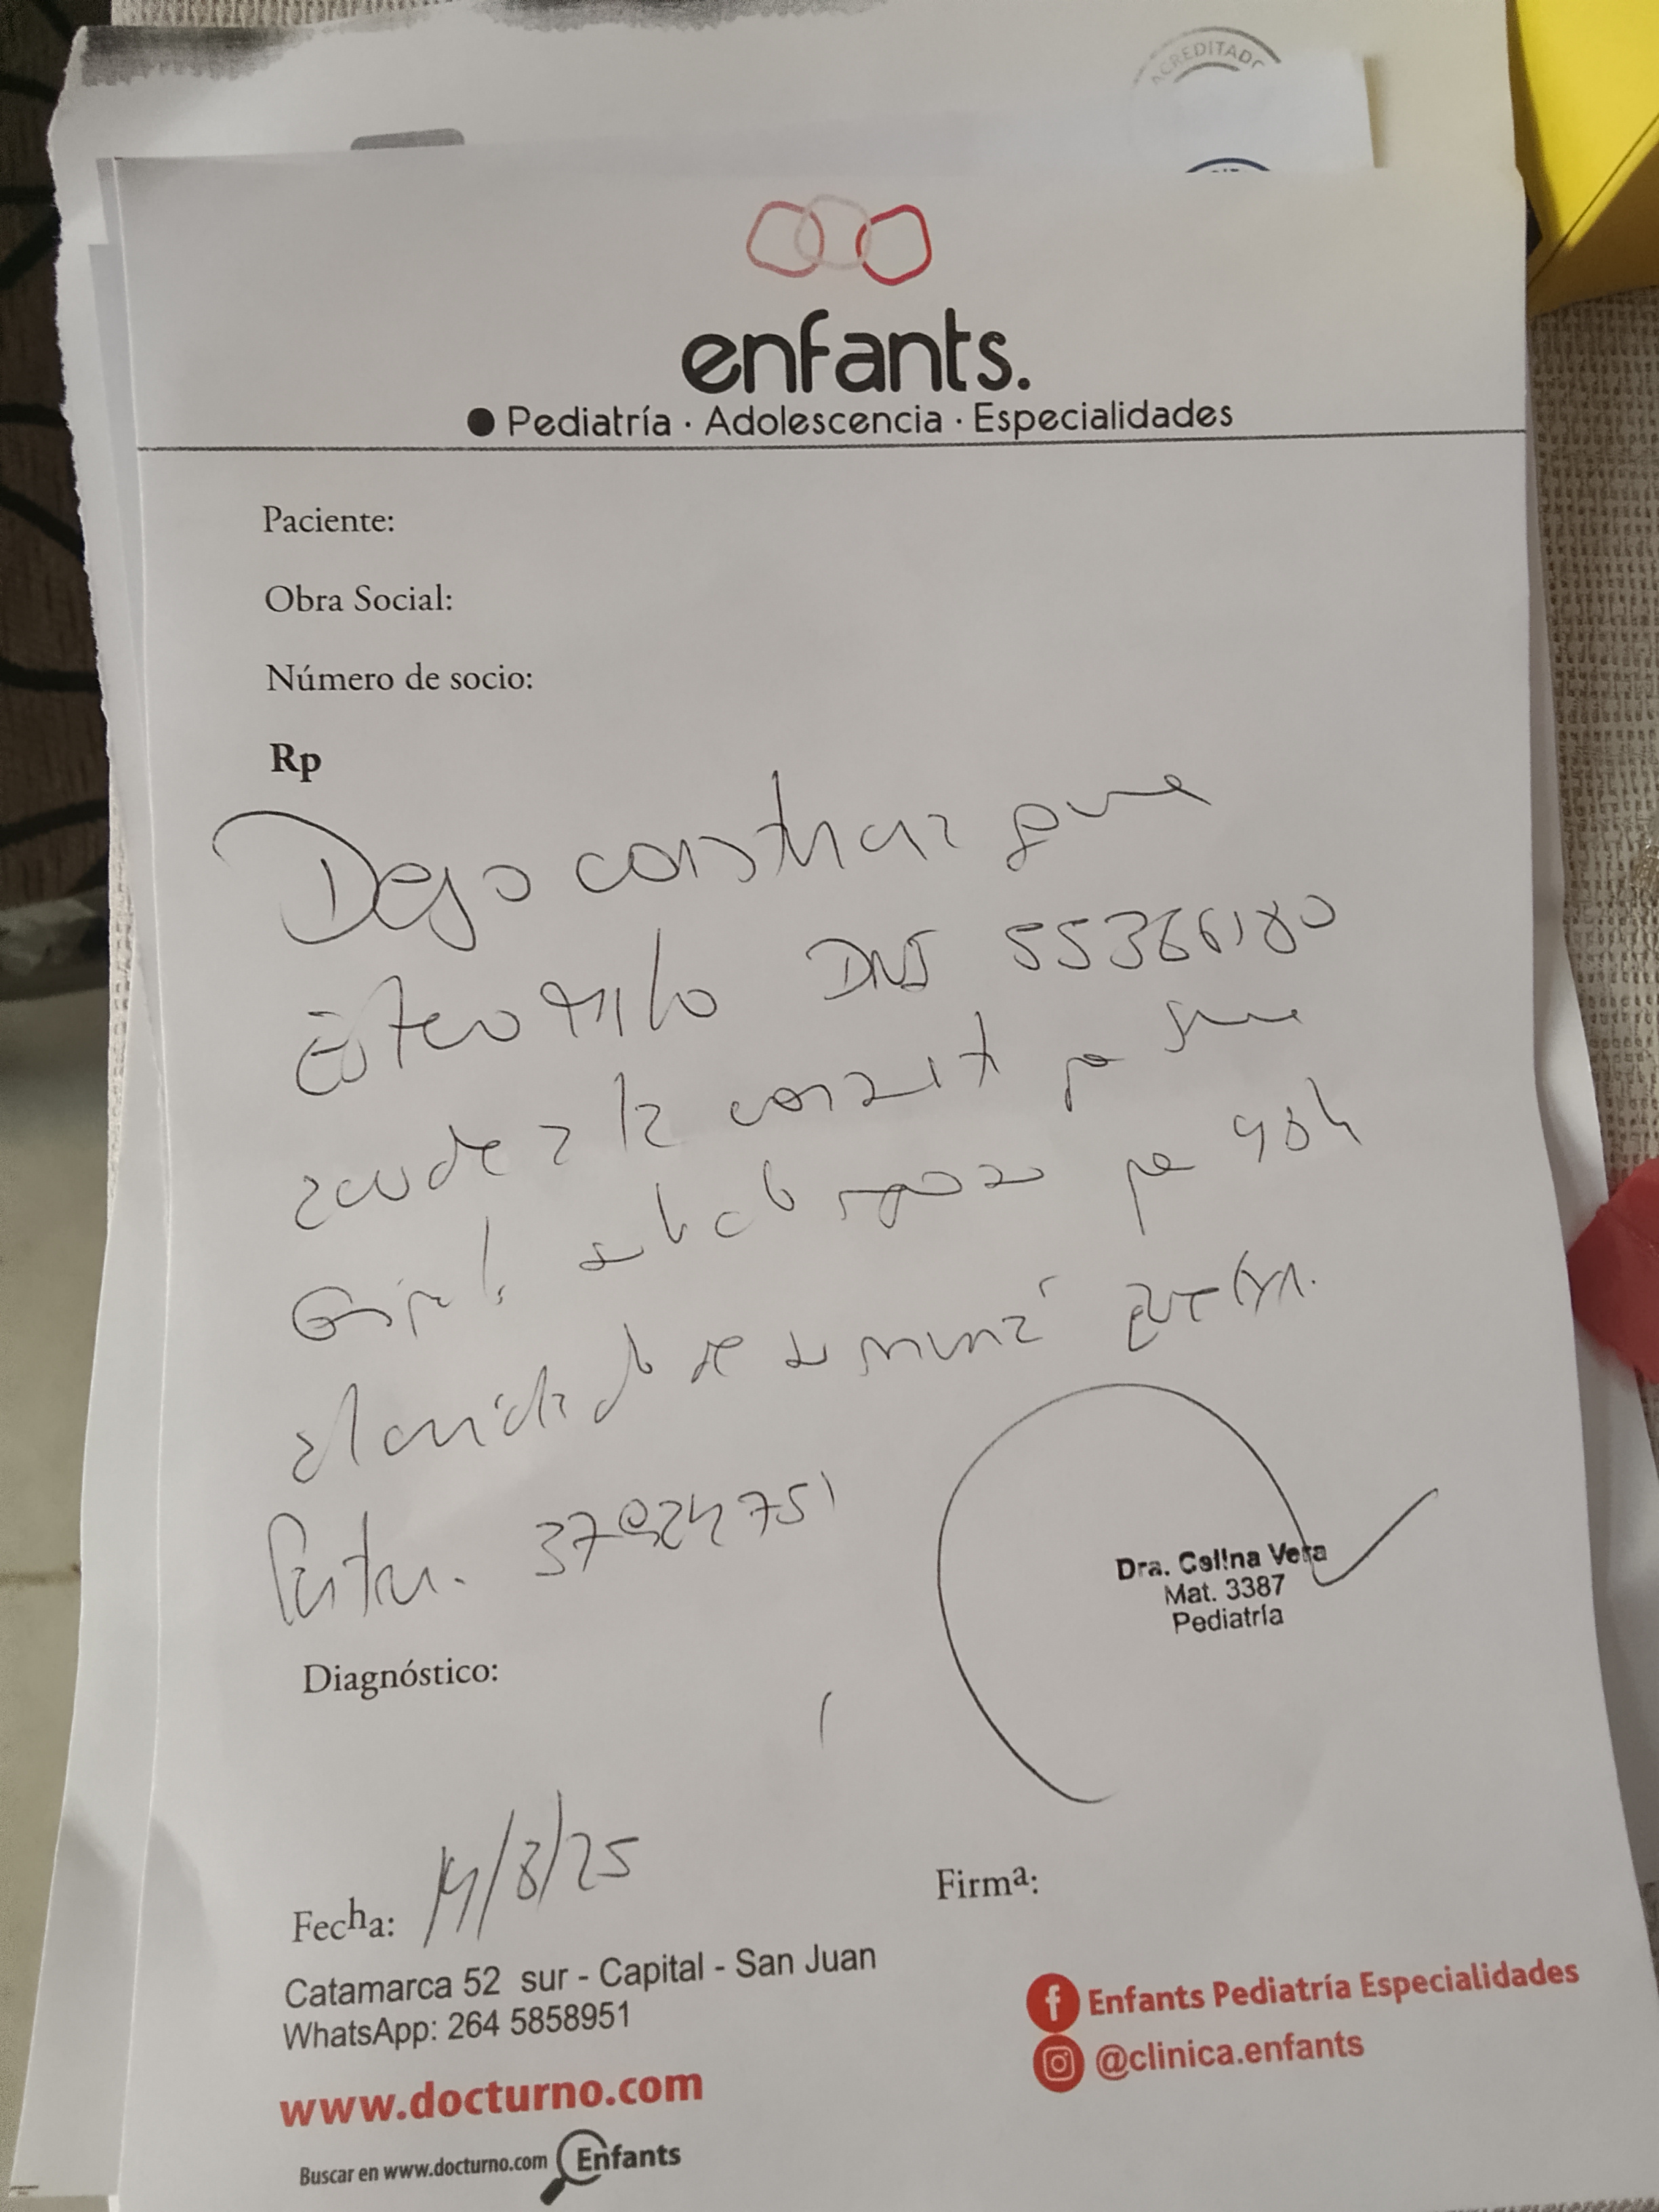 ACREDITADO
enfants.
Pediatría · Adolescencia · Especialidades
Paciente:
Obra Social:
Número de socio:
Rp
Dejo constancia que
DNI 55366180
acude a la consulta por
reposo por 48h
al cuidado de su mamá Evelyn.
Dra. Celina Vera
Mat. 3387
Pediatría
Diagnóstico:
Fecha: 14/8/25
Firma:
Catamarca 52 sur - Capital - San Juan
WhatsApp: 264 5858951
www.docturno.com
Buscar en www.docturno.com Enfants
Enfants Pediatría Especialidades
@clinica.enfants